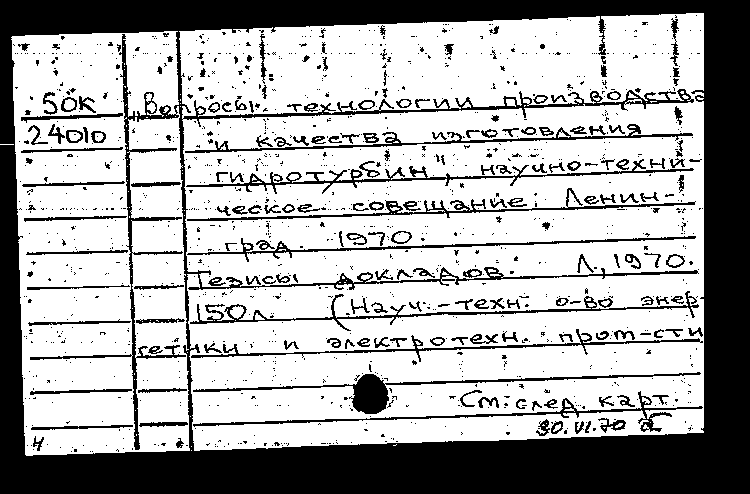 50К „Вопросы технологии производства
24010 и качества изготовления
гидротурбин", научно-техни-
ческое совещание. Ленин-
град. 1970.
Тезисы докладов. Л, 1970.
150л. (Науч.-техн. о-во энер-
гетики и электротехн. пром-сти
См. след. карт.
30.VI.70
4